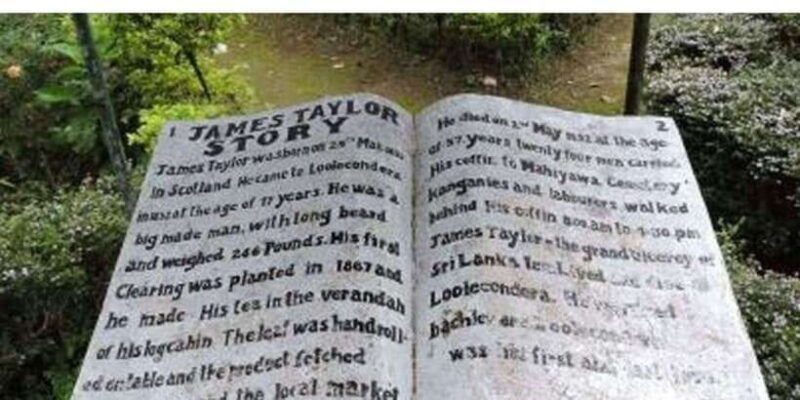 1 JAMES TAYLOR
STORY
James Taylor was born on 29th Mar
in Scotland. He came to Loolecondera
at the age of 17 years. He was a
big made man, with long beard
and weighed 246 Pounds. His first
Clearing was planted in 1867 and
he made His tea in the verandah
of his logcabin. The leaf was handroll-
ed on table and the product fetched
the local market
2
He died on 2nd May 1892 at the age
of 57 years twenty four men carried
His coffin to Mahiyawa Cemetery
kanganies and labourers walked
behind His coffin 8.00 am to 4.30 pm
James Taylor - the grand viceroy of
Sri Lanka tea. Lived
Loolecondera. He
was his first and last love.